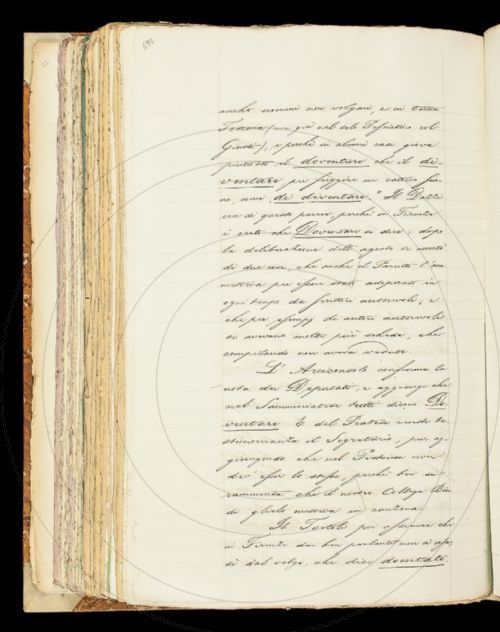 693
anche uomini non volgari, e in tutta
Toscana (ma già nel solo
e poiché in alcuni casi giova
piuttosto il deventare che il di-
ventare, per fuggire un cattivo suo-
no, come, di diventare." Il Dalzi
era di questo parere, poiché in Firenze
è certo che Deventare si dice; dopo
la deliberazione dell' agosto si mutò
di due cose, che anche il Parenti l'am-
metteva per essere stato adoperato in
ogni tempo da scrittori autorevoli; e
che per esempj di autori autorevoli
si avevano molte più schede, che
compilando non aveva vedute.
L' Arciconsolo conferma la
nota dei Deputati, e aggiunge che
nel Samminiatese tutti dicono De-
ventare. E del Pratese rende te-
stimonianza il Segretario, pur ag-
giungendo che nel Pistoiese non
dirò esser lo stesso, perché ben si
rammenta che il nostro Collega Bin-
di glielo metteva in canzona.
Il Tortoli poi osserva che
in Firenze dai ben parlanti non è
sì dal volgo, che dice doventare.